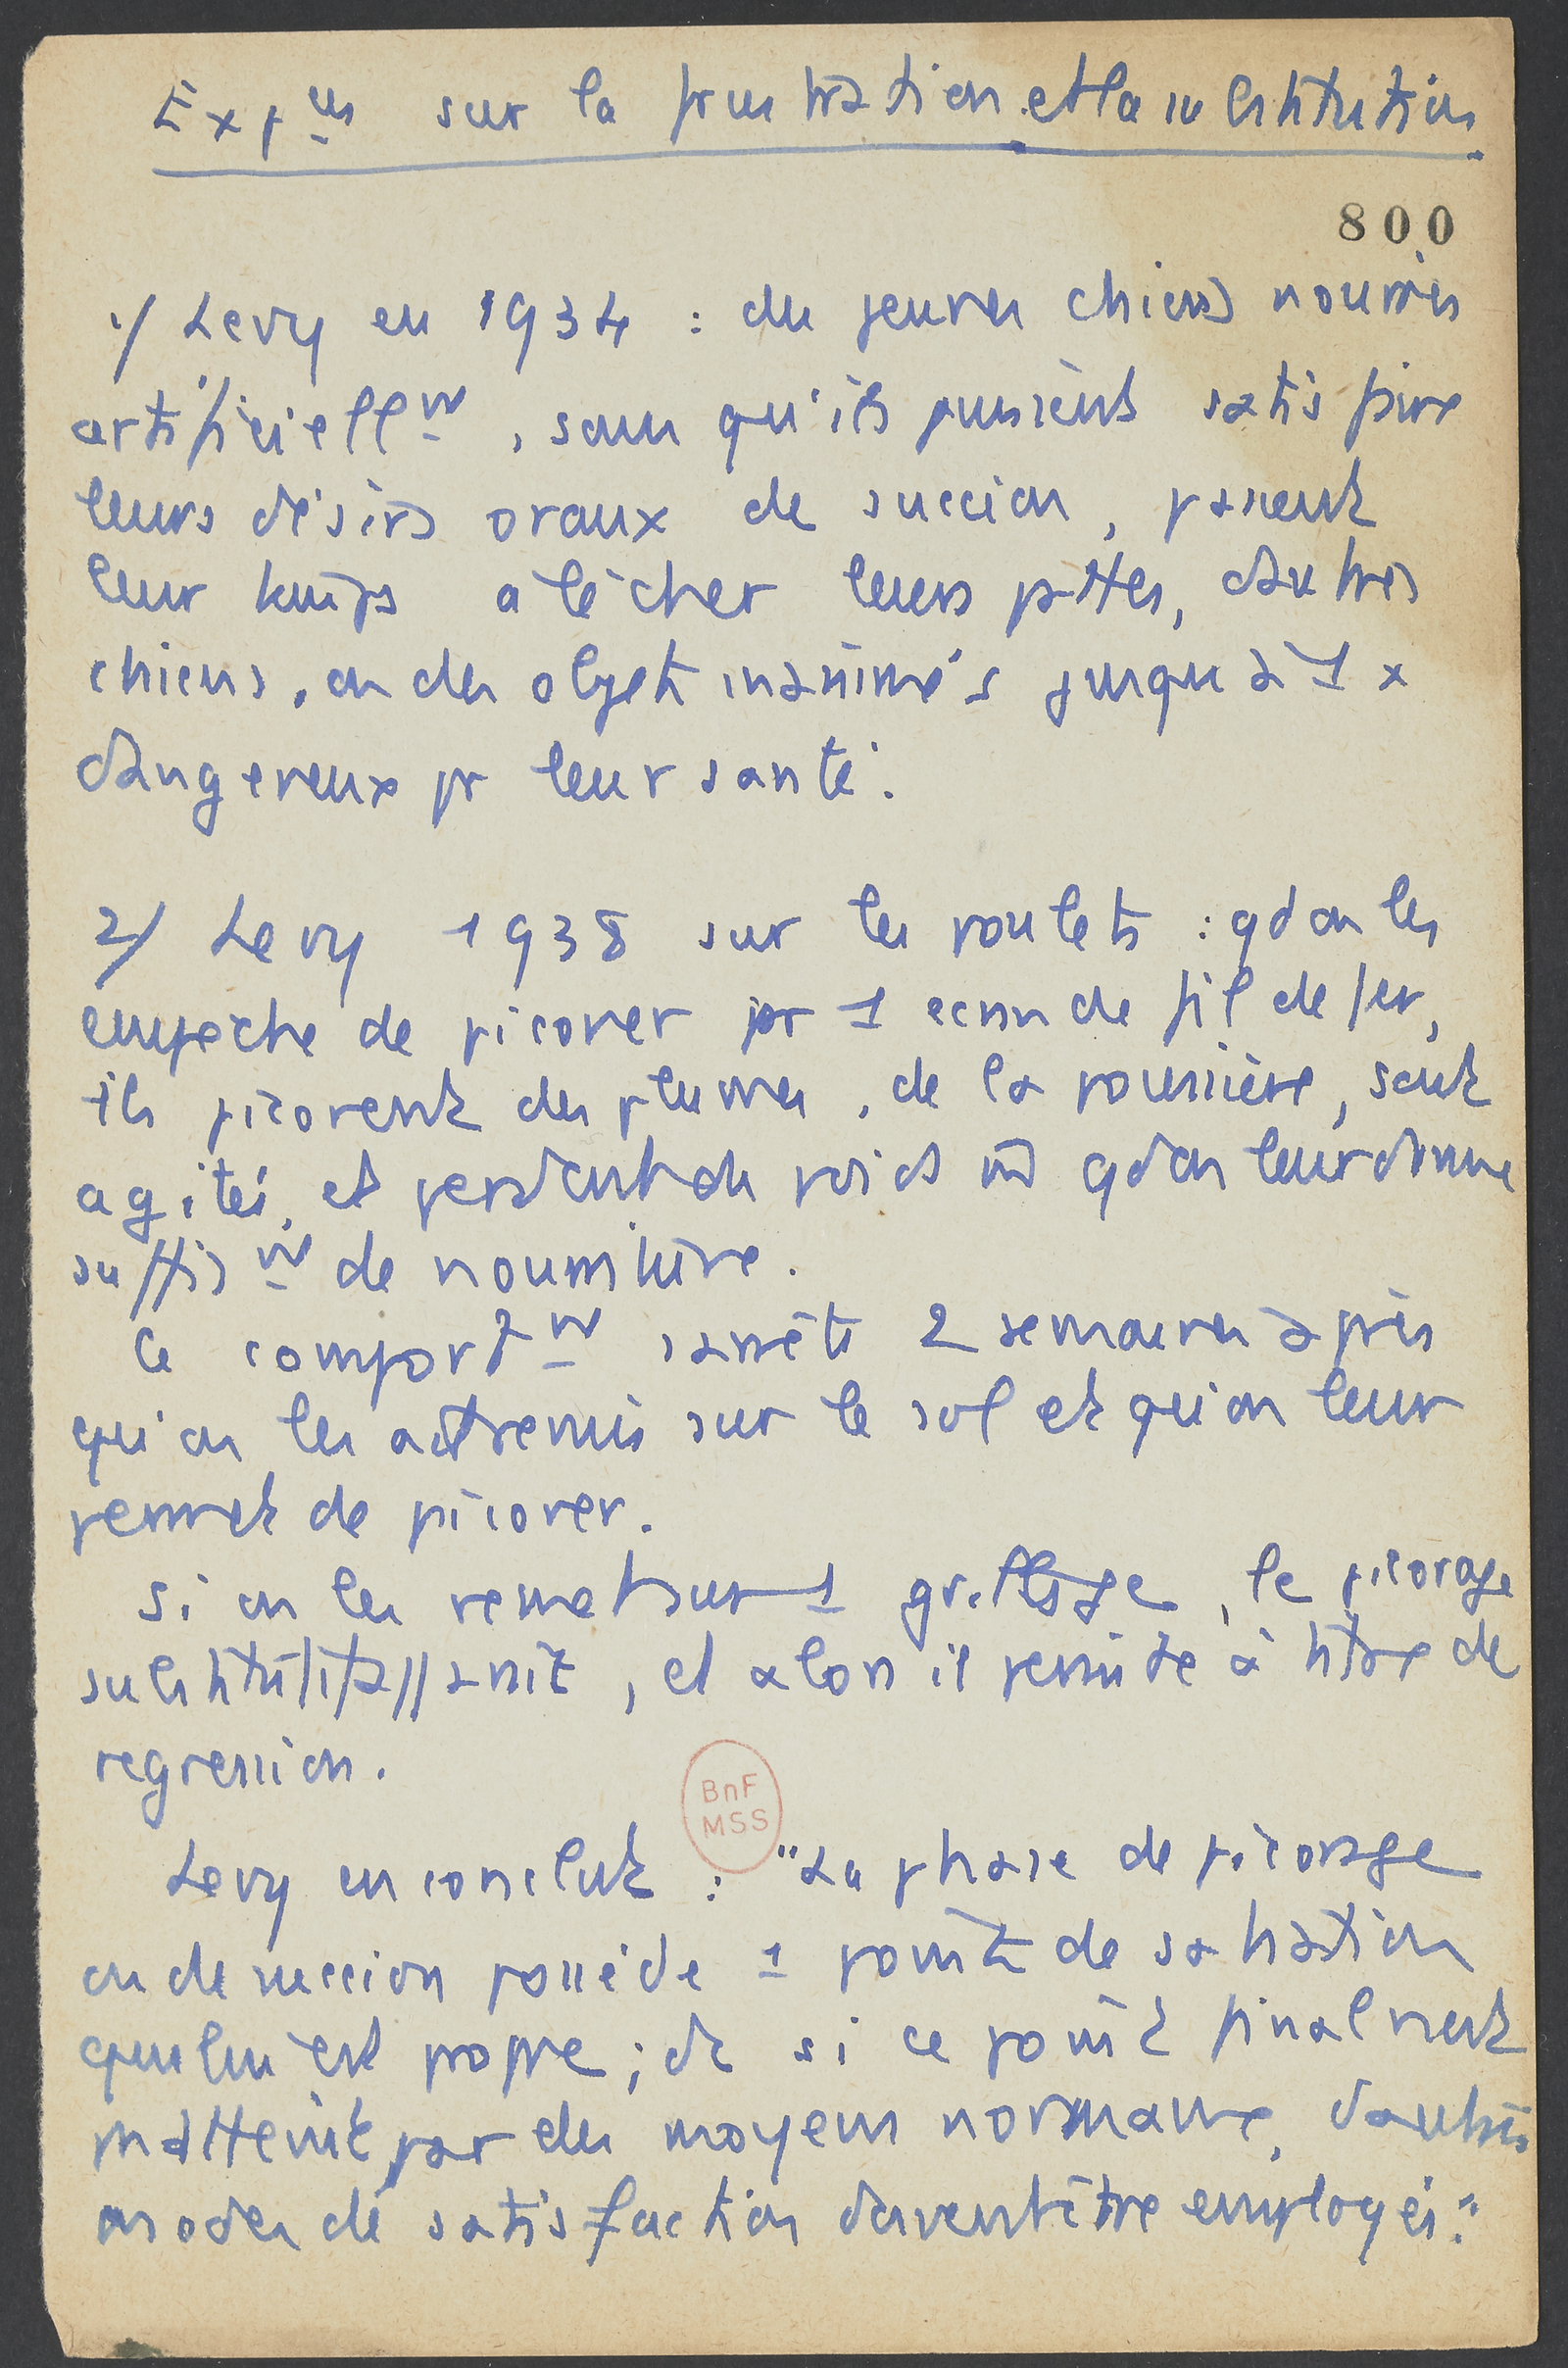 Expces sur la frustration et la substitution
800
1/ Levy en 1934 : des jeunes chiens nourris
artificiellmt, sans qu'ils puissent satisfaire
leurs désirs oraux de succion, passent
leur temps à lécher leurs pattes, d'autres
chiens, ou des objets inanimés jusqu'à 1 x
dangereux pr leur santé.
2/ Levy 1938 sur les poulets : qd on les
empêche de picorer pr 1 écran de fil de fer,
ils picorent des plumes, de la poussière, sont
agités, et perdent du poids m̂ qd on leur donne
suffist de nourriture.
Ce comportmt s'arrête 2 semaines après
qu'on les ait remis sur le sol et qu'on leur
permet de picorer.
Si on les remet sur 1 grillage, le picorage
substitutif, et alors il persiste à titre de
regression.
Levy en conclut : "La phase de picorage
ou de succion possède 1 point de satiation
qui lui est propre ; et si ce point final n'est
pas atteint par des moyens normaux, d'autres
modes de satisfaction doivent être employés."
BnF
MSS